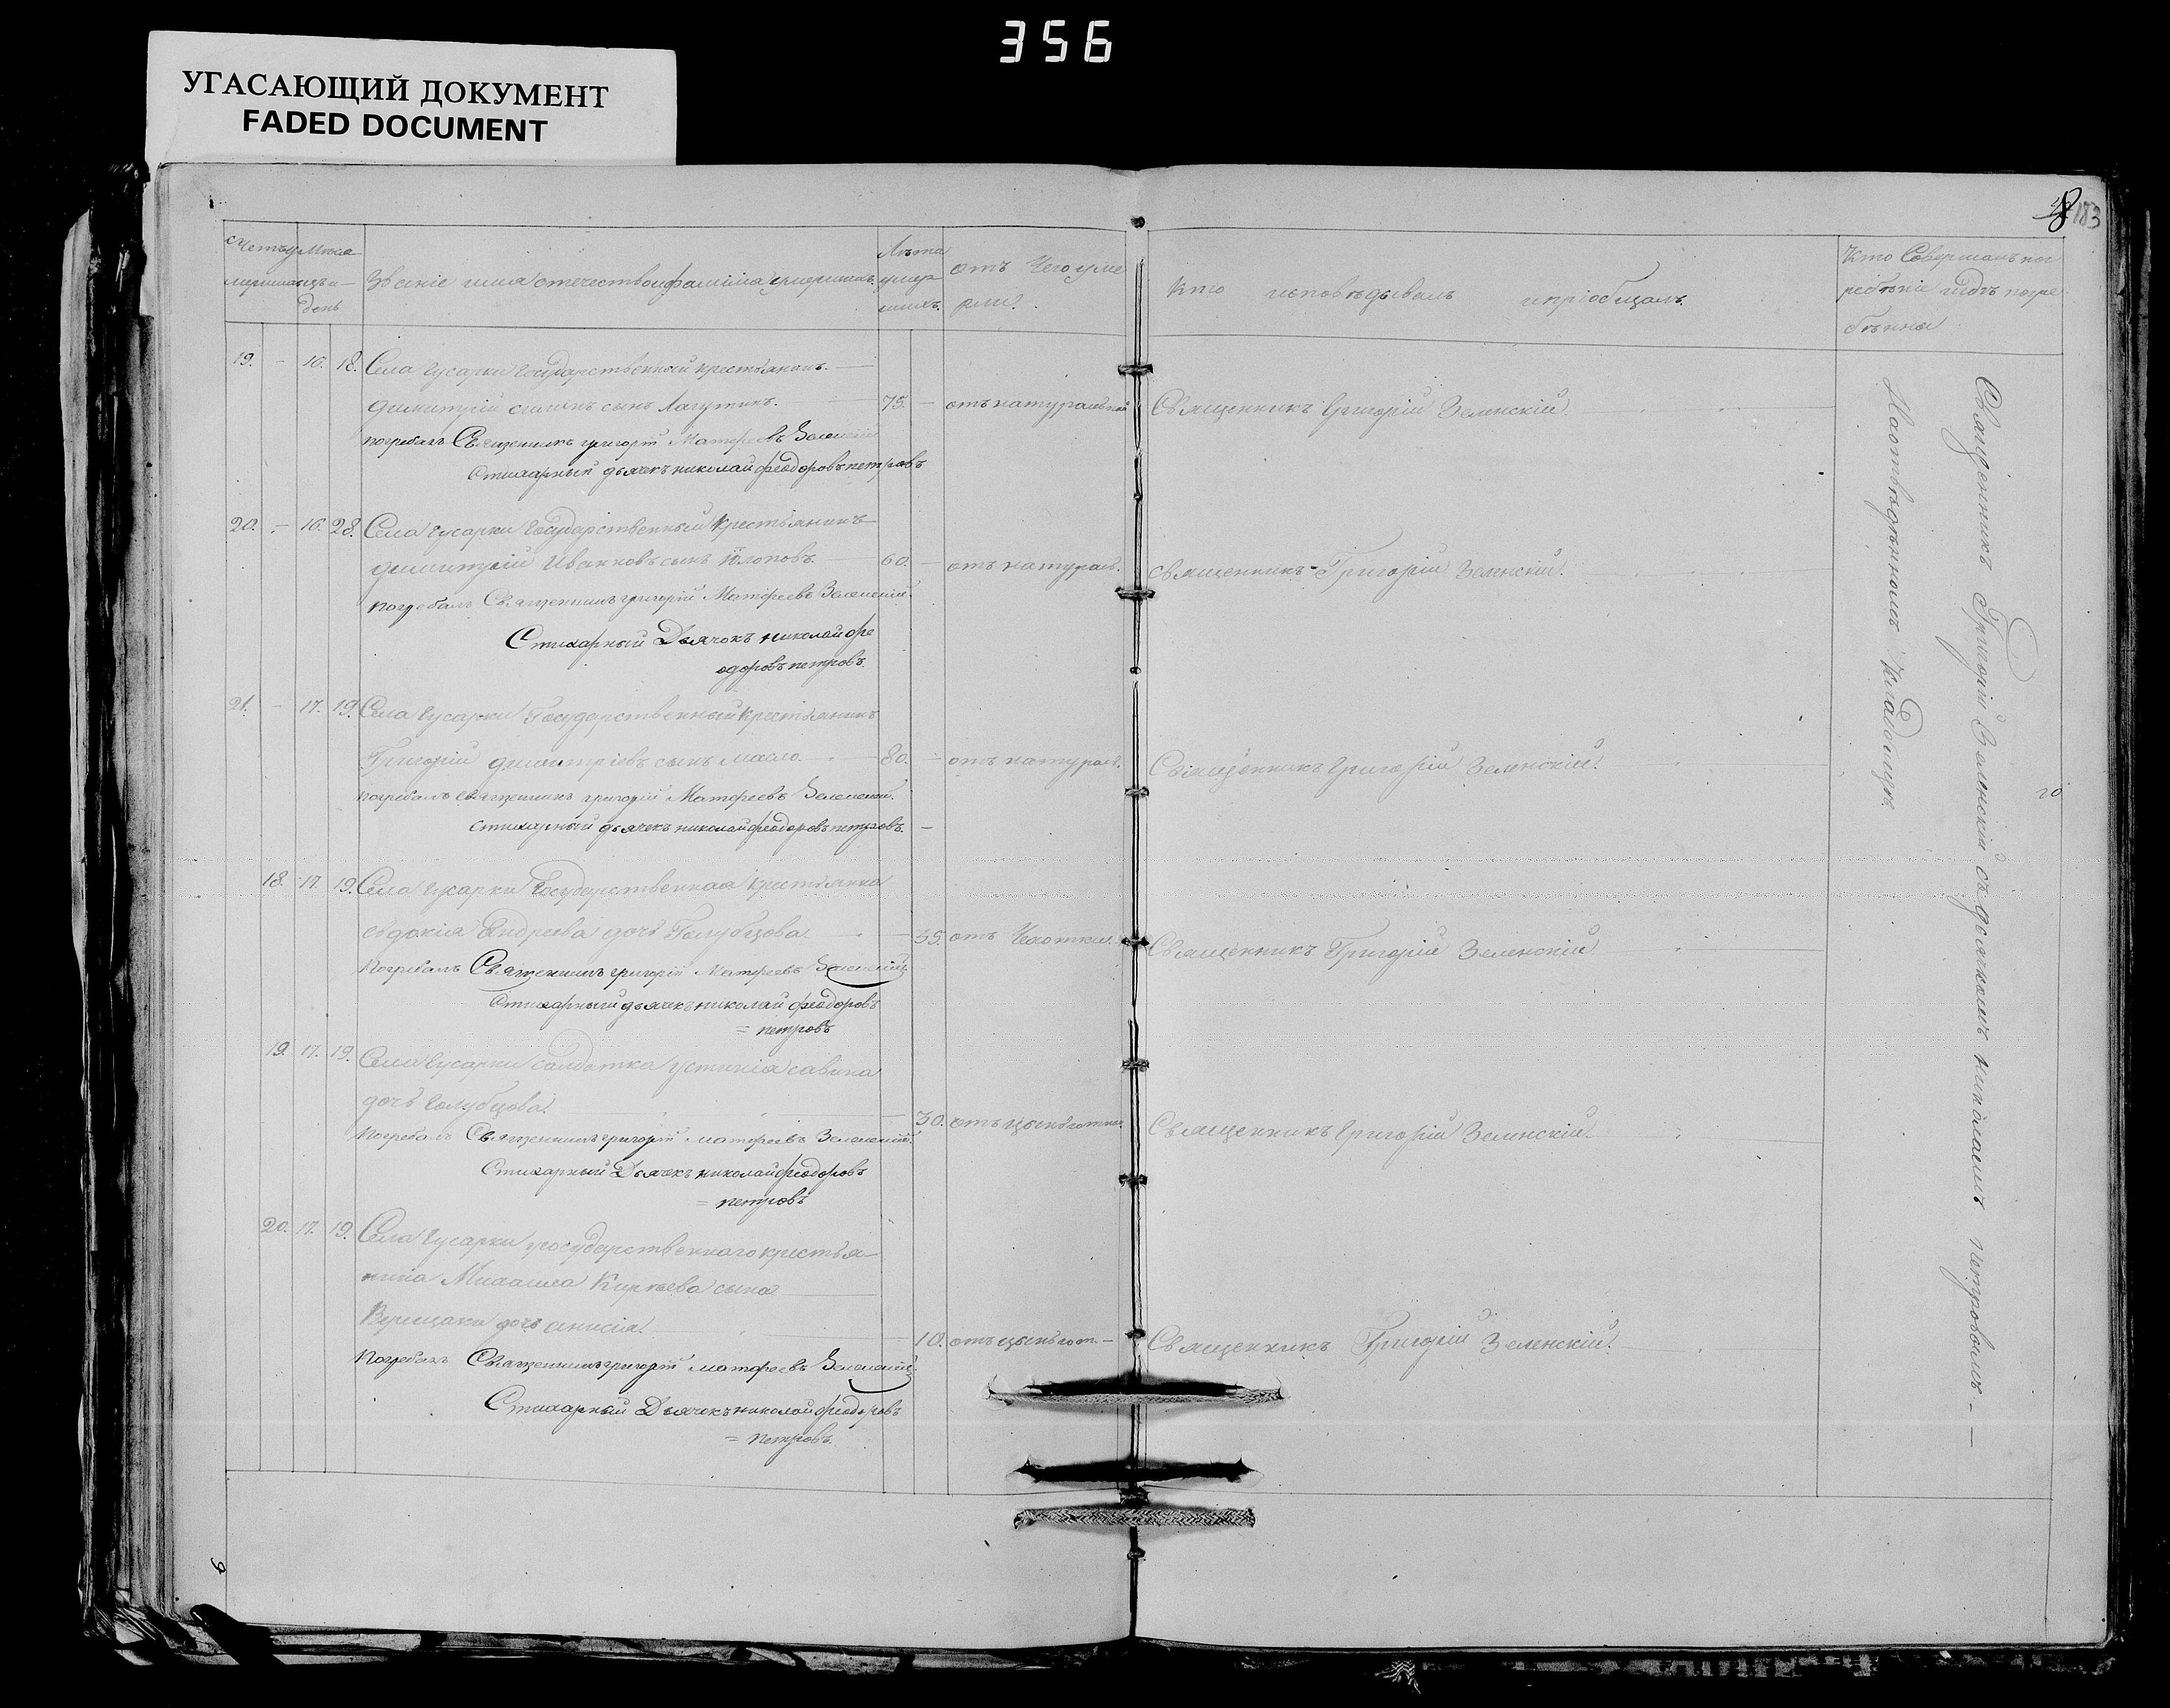 356
УГАСАЮЩИЙ ДОКУМЕНТ
FADED DOCUMENT
183
Счетъ умершихъ
Мѣсяцъ и день
Званіе имя отечество и фамилія умершихъ.
Лѣта умершихъ.
отъ Чего умерли.
Кто исповѣдывалъ и пріобщалъ.
Кто Совершалъ погребѣніе и гдѣ погребѣнны
19. – 16. 18. Села Гусарки Государственный крестьянинъ.
Димитрій сынъ Лагутинъ. 75. – отъ натуральной Священникъ Григорій Зеленскій.
погребалъ Священникъ григорій Матфеевъ Зеленскій
Стихарный дьячекъ николай феодоровъ петровъ
20. – 16. 28. Села Гусарки Государственный Крестьянинъ
димитрій Ивановъ сынъ Клоповъ. 60. – отъ натурал. священникъ Григорій Зеленскій.
погребалъ Священникъ григорій Матфеевъ Зеленскій.
Стихарный Дьячокъ николай фе
одоровъ петровъ.
21. – 17. 19. Села Гусарки Государственный крестьянинъ
Григорій димитріевъ сынъ масло. 80. – отъ натурал. Священникъ Григорій Зеленскій.
погребалъ священникъ григорій Матфеевъ Зеленскій.
стихарный дьячекъ николай феодоровъ петровъ. –
18. 17. 19. Села Гусарки Государственная крестьянка
евдокія Андреева дочь Голубцова. 35. отъ Чахотки. Священникъ Григорій Зеленскій
Погребалъ Священникъ григорій Матфеевъ Зеленскій
Стихарный дьячекъ николай феодоровъ
= петровъ
19. 17. 19. Села Гусарки солдатка устинія савина
дочь Голубцова. 30. отъ цынготной Священникъ Григорій Зеленскій.
Погребалъ Священникъ григорій матфеевъ Зеленскій.
Стихарный Дьячекъ николай феодоровъ
= петровъ
20. 17. 19. Села Гусарки государственнаго крестья
нина Михаила Кирѣева сына
дочь анисія. 10. отъ цынгот. – Священникъ Григорій Зеленскій.
Погребалъ Священникъ григорій матфеевъ Зеленскій.
Стихарный Дьячекъ николай феодоровъ
= петровъ.
Священникъ Григорій Зеленскій съ дьячкомъ николаемъ петровымъ. –
На отвѣденномъ кладбищѣ.
20
9